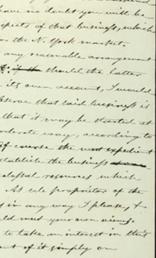 have no doubt you will be
aspects of that business, which
in the N. York market.
any reasonable arrangement
should the latter
its own account, I would
that said business is
that it may be started at
moderate way, according to
of course the most expedient
establish the business
resources which
As sole proprietor of the
in any way I please, &
you even
to take an interest in this
out of it simply on